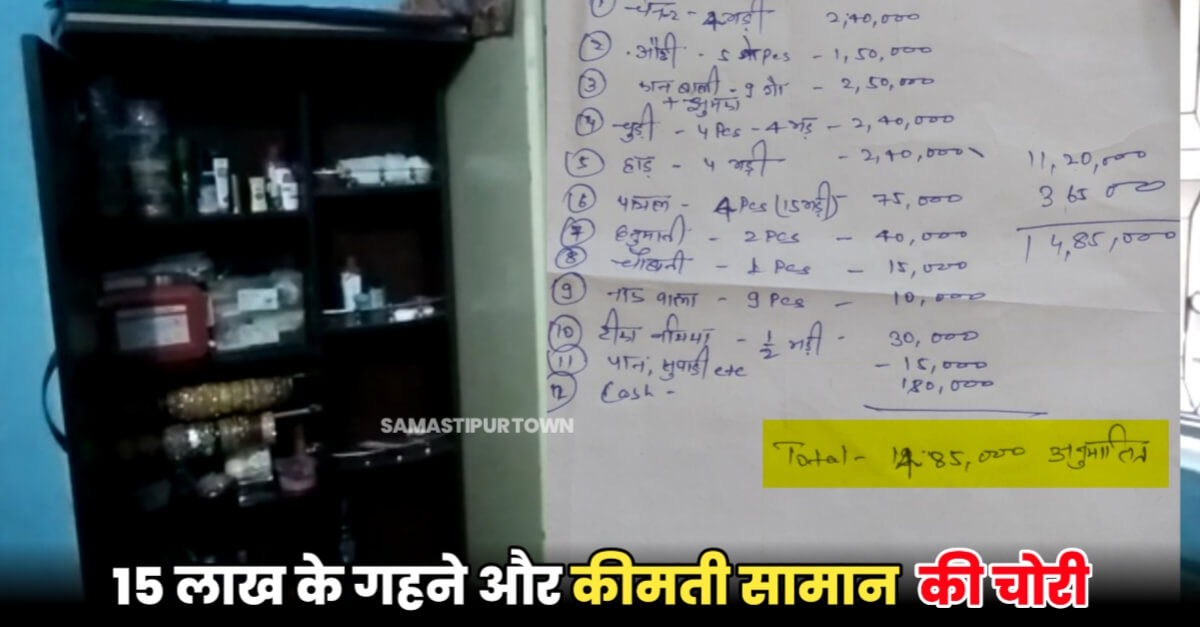 ① चेन - 4 भड़ी 2,40,000
② . औंठी - 5 Pcs - 1,50,000
③ कान बाली - 9 गो - 2,50,000
+ झुमका
④ चुड़ी - 4 Pcs - 4 भड़ - 2,40,000
⑤ हाड़ - 4 भड़ी - 2,40,000
11,20,000
⑥ पायल - 4 Pcs (15 भड़ी) - 75,000
3 65 000
⑦ हनुमानी - 2 Pcs - 40,000
14,85,000
⑧ - 1 Pcs - 15,000
⑨ वाला - 9 Pcs - 10,000
⑩ टीका - 1/2 भड़ी - 30,000
⑪ पान, etc - 15,000
12 Cash - 180,000
SAMASTIPURTOWN
Total - 14,85,000 अनुमानित
15 लाख के गहने और कीमती सामान की चोरी